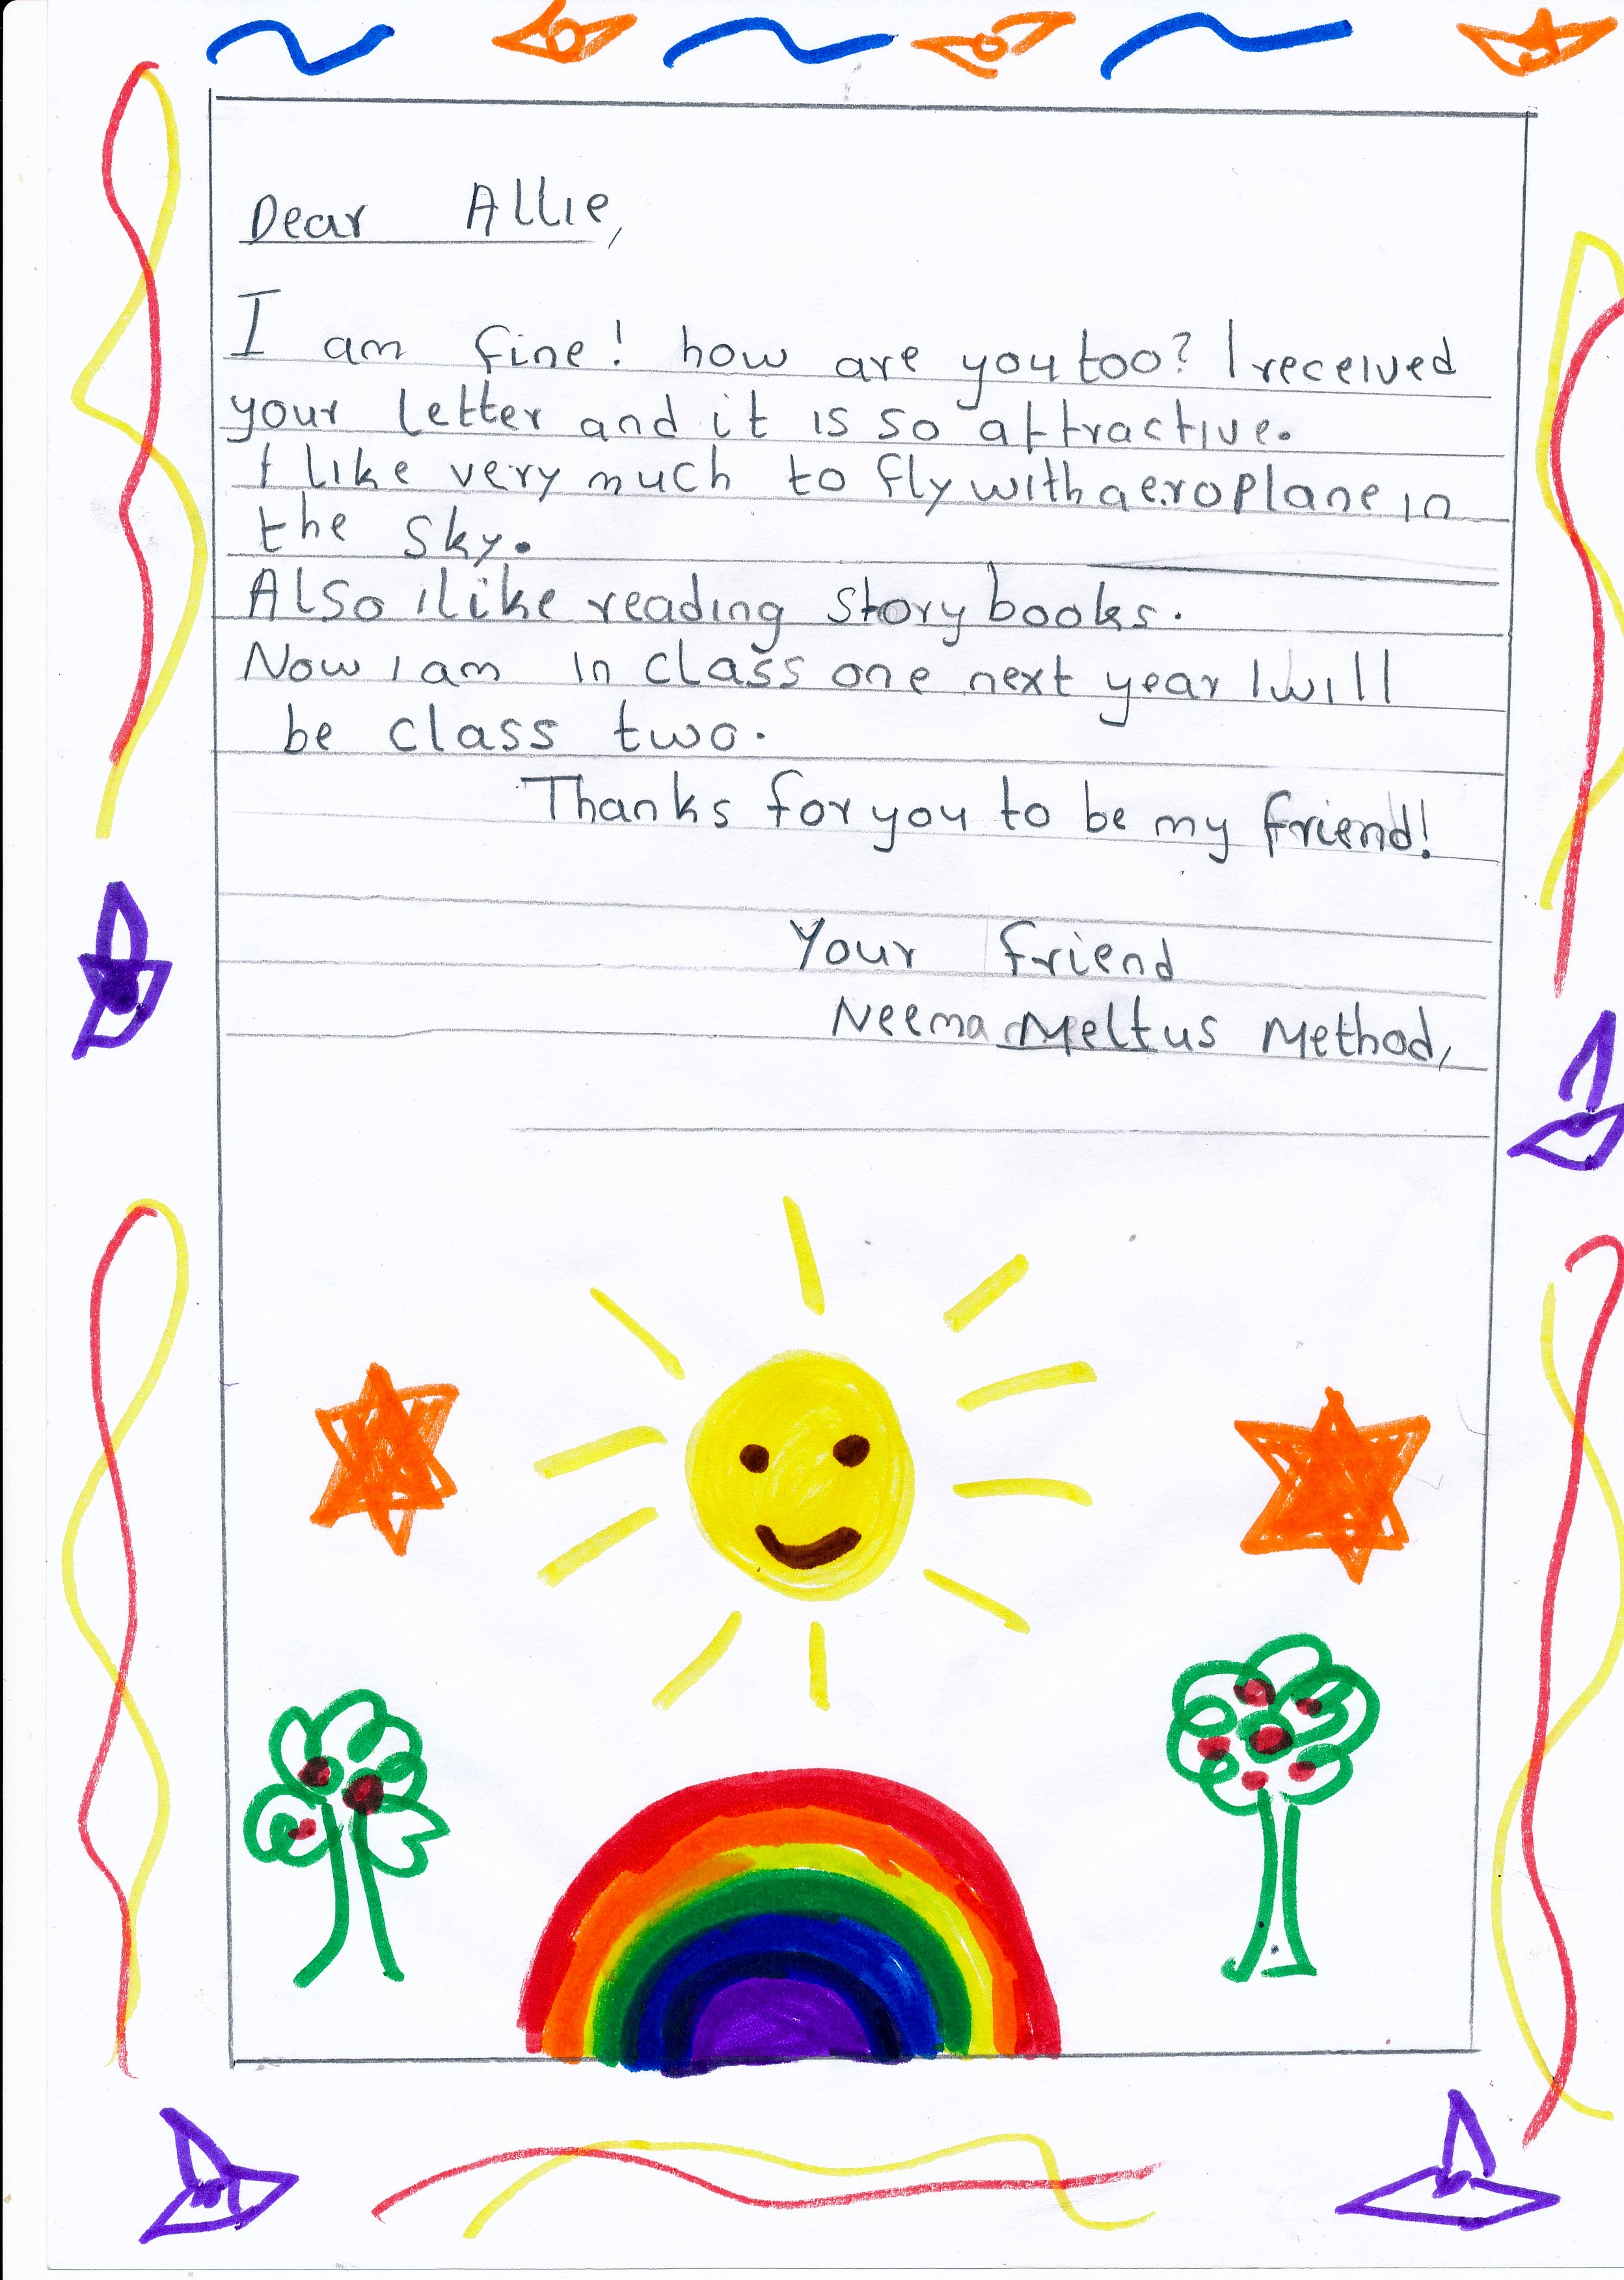 Dear Allie,
I am fine! how are you too? I received
your letter and it is so attractive.
I like very much to fly with aeroplane in
the sky.
Also i like reading story books.
Now i am in class one next year I will
be class two.
Thanks for you to be my friend!
Your friend
Neema Meltus Method,